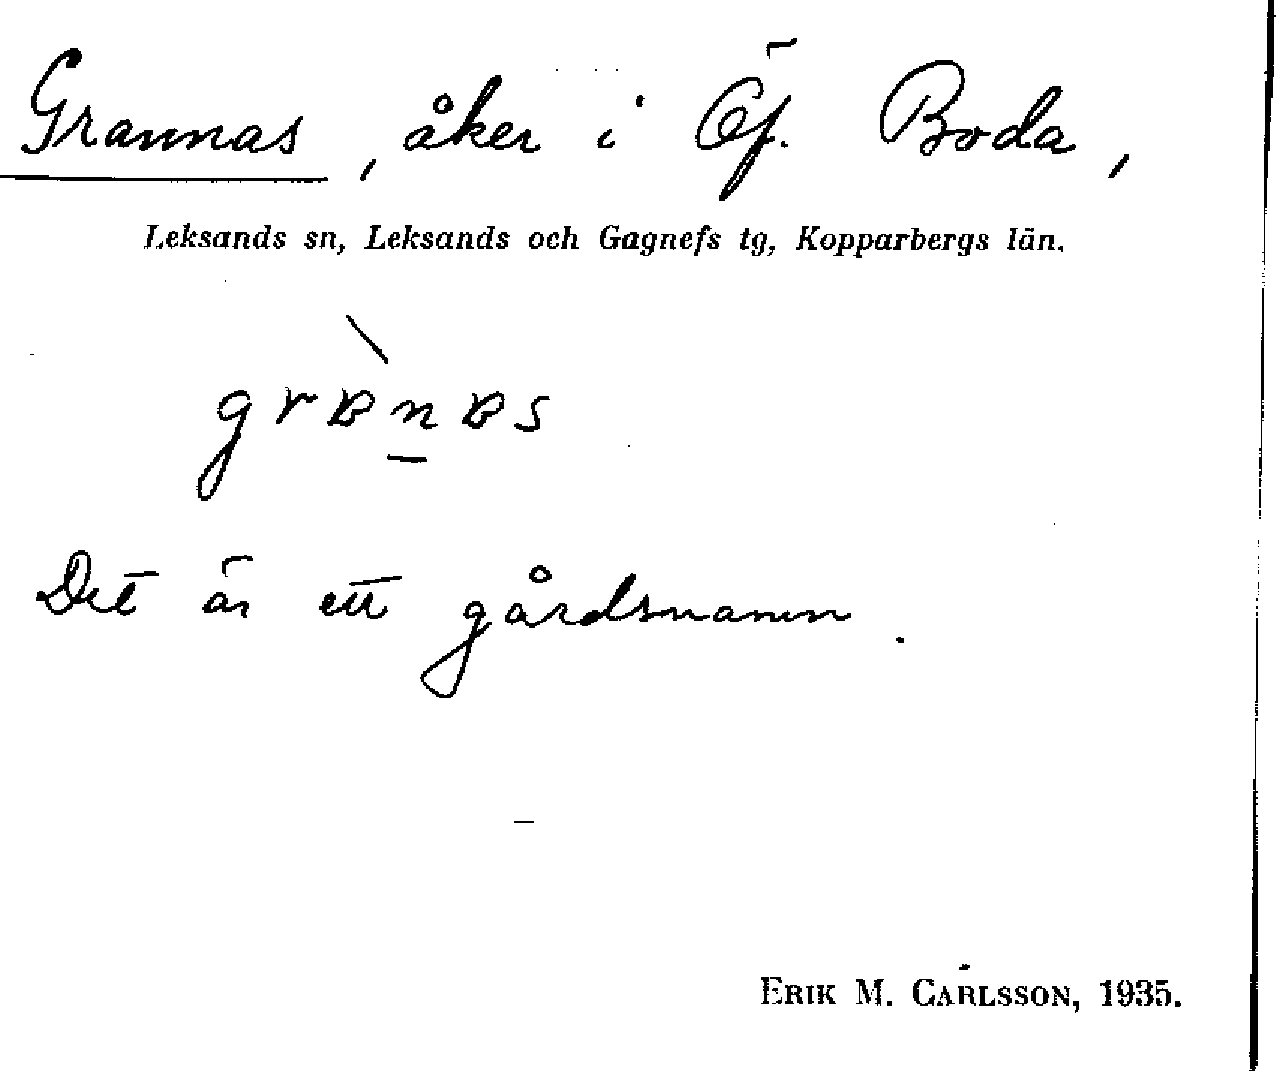 Grannas, åker i Öf. Boda,
Leksands sn, Leksands och Gagnefs tg, Kopparbergs län.
Det är ett gårdsnamn.
ERIK M. CARLSSON, 1935.